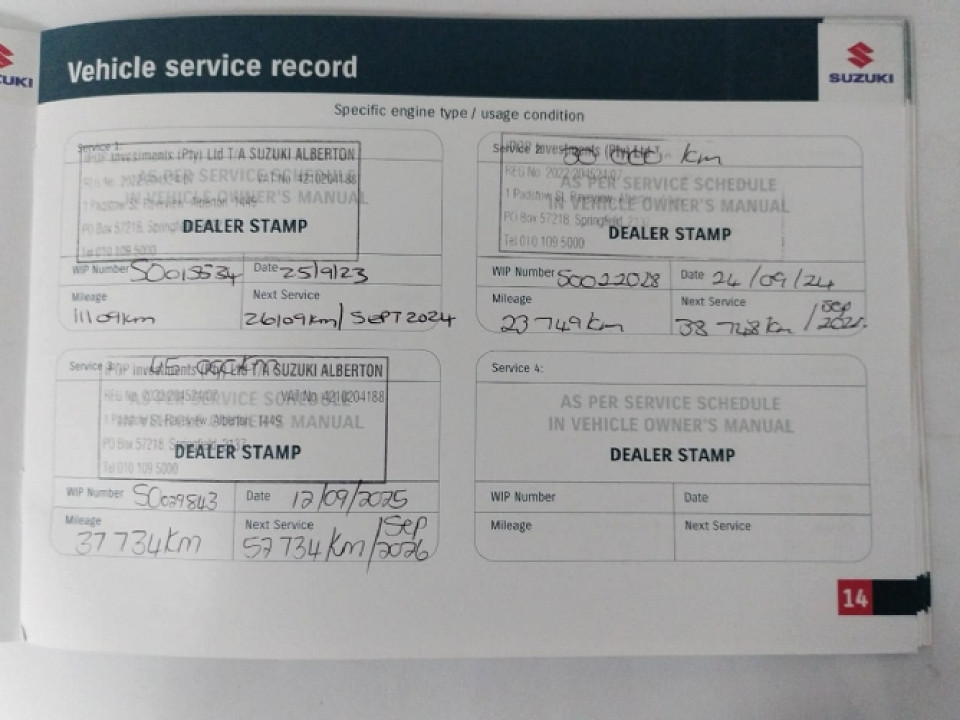 UKI
Vehicle service record
SUZUKI
Specific engine type / usage condition
Service 1:
Investments (Pty) Ltd T/A SUZUKI ALBERTON
AS PER SERVICE SCHEDULE
VAT No. 4210204188
IN VEHICLE OWNER'S MANUAL
1 Padstow St, Raceview, Alberton, 1449
PO Box 57218, Springfield
DEALER STAMP
Tel 010 109 5000
WIP Number SO015534 Date 25/9/23
Mileage Next Service
11109km 26109km/ SEPT 2024
Service 2: 30 000 km
Investments (Pty) Ltd
REG No. 2022/204524/07
AS PER SERVICE SCHEDULE
1 Padstow St, Raceview,
IN VEHICLE OWNER'S MANUAL
PO Box 57218, Springfield, 2137
DEALER STAMP
Tel 010 109 5000
WIP Number SO022028 Date 24/09/24
Mileage Next Service
23 749 km 38 748 km /Sep
Service 3: 45 000km
Investments (Pty) Ltd T/A SUZUKI ALBERTON
REG No. 2022/204524/07 VAT No. 4210204188
AS PER SERVICE SCHEDULE
1 Padstow St, Raceview, Alberton, 1449
IN VEHICLE OWNER'S MANUAL
PO Box 57218, Springfield, 2137
DEALER STAMP
Tel 010 109 5000
WIP Number SO029843 Date 12/09/2025
Mileage Next Service
37 734 km 52 734 km/Sep 2026
Service 4:
AS PER SERVICE SCHEDULE
IN VEHICLE OWNER'S MANUAL
DEALER STAMP
WIP Number Date
Mileage Next Service
14